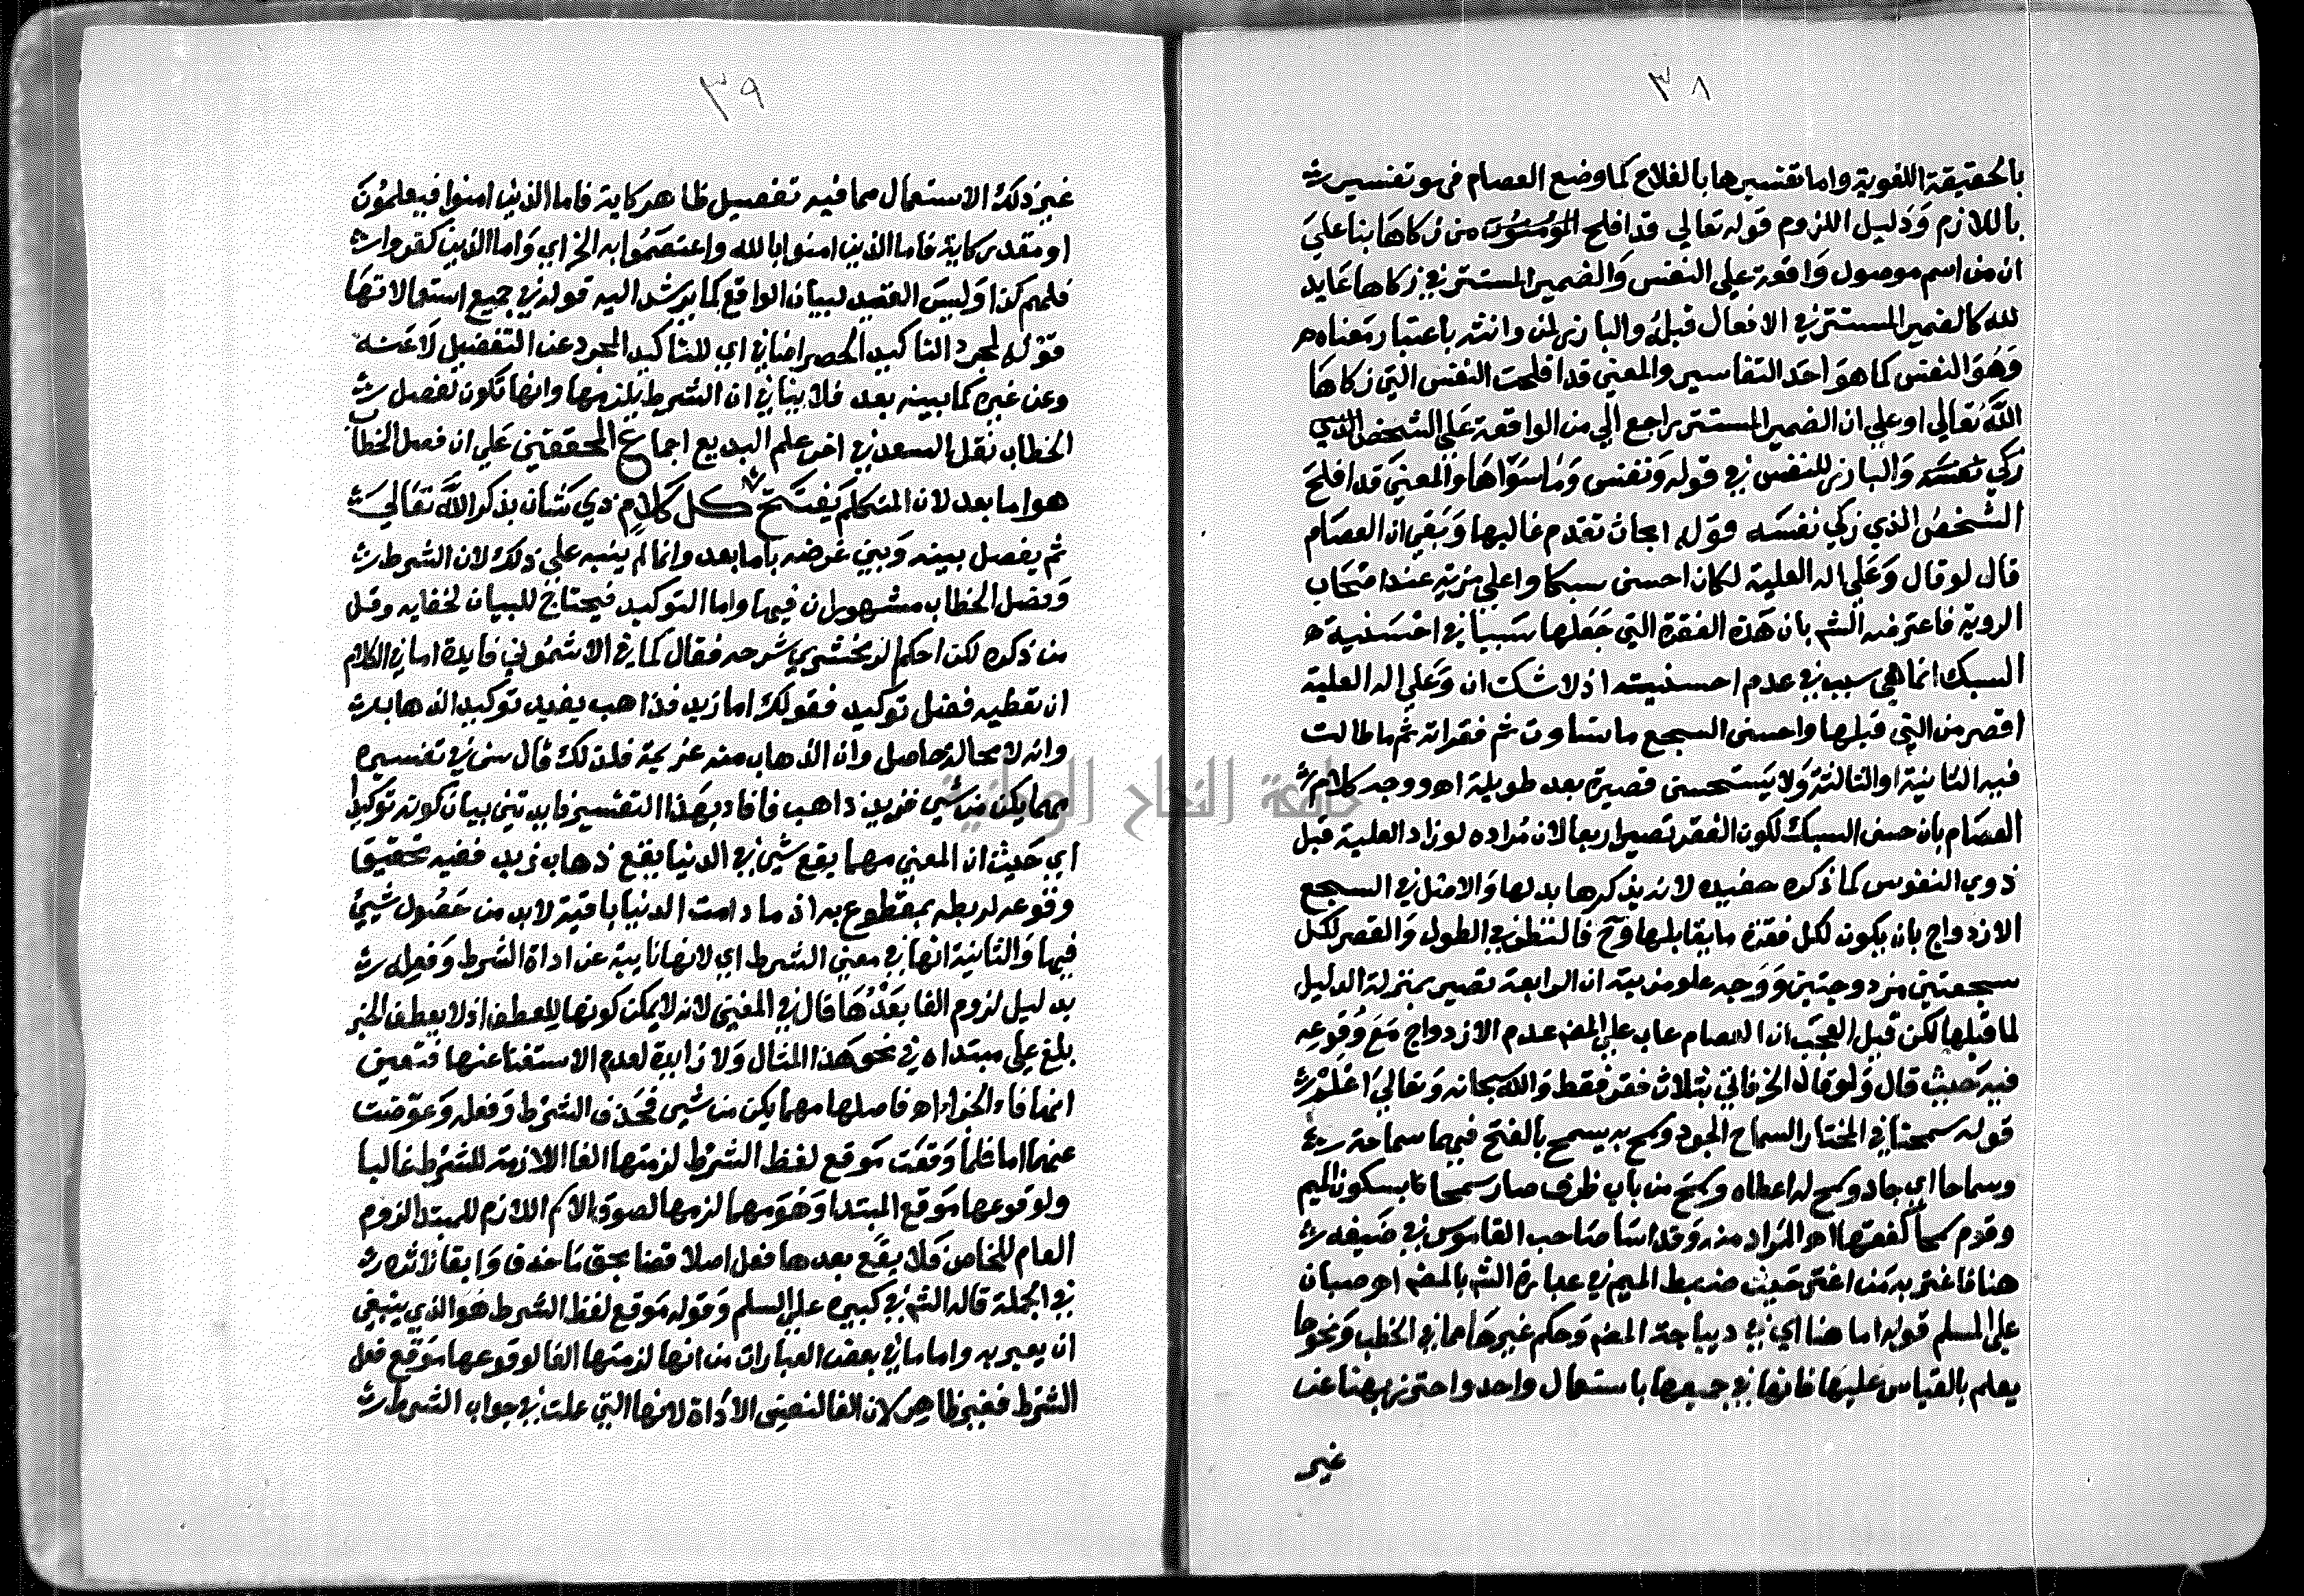 ٣٨
بالحقيقة اللغوية واما تفسيرها بالفلاح كما وضع العصام فهو تفسير
باللازم ودليل اللزوم قوله تعالي قد افلح المؤمنون من زكاها بنا علي
ان من اسم موصول واقعة علي النفس والضمير المستتر في زكاها عايد
لله كالضمير المستتر في الافعال قبله والبارز لمن وانثه باعتبار معناه
وهو النفس كما هو احد التفاسير والمعني قد افلحت النفس التي زكاها
الله تعالي او علي ان الضمير المستتر راجع الي من الواقعة علي الشخص الذي
زكي نفسه والبارز للنفس في قوله ونفس وما سواها والمعني قد افلح
الشخص الذي زكي نفسه قوله ابحاث تقدم غالبها وبقي ان العصام
قال لو قال وعلي اله العلية لكان احسن سبكا واعلي مزية عند اصحاب
الروية فاعترضه الشم بان هذه الفقرة التي جعلها سببا في احسنية
السبك انما هي سبب في عدم احسنيته اذ لا شك ان وعلي اله العلية
اقصر من التي قبلها واحسن السجع ما تساوت فقراته ثم ما طالت
فيه الثانية او الثالثة ولا يستحسن قصيرة بعد طويلة اهـ ووجه كلام
العصام بان حسن السبك لكون الفقر تصير اربعا لان مراده لو زاد العلية قبل
ذوي النفوس كما ذكره حفيده لانه يذكرها بدلها والامثل في السجع
الازدواج بان يكون لكل فقرة ما يقابلها وح فالنظر في الطول والقصر لكل
سجعتين مزدوجتين ووجه علو مزيته ان الرابعة تصير بمنزلة الدليل
لما قبلها لكن قيل العجب ان العصام عاب علي المص عدم الازدواج مع وقوعه
فيه حيث قال ولو قال الخ فاتي بثلاث فقر فقط والله سبحانه وتعالي اعلم
قوله سمحتا في المختار السماح الجود وسمح به يسمح بالفتح فيهما سماحة
وسماحا اي جاد وسمح له اعطاه وسمح من باب ظرف صار سمحا بسكون الميم
وقوم سمحا كفقها اهـ المراد منه وقد اسا صاحب القاموس في صنيعه
هنا فاغتر به من اغتر حيث ضبط الميم في عبارة الشم بالضم اهـ صبان
علي السلم قوله اما هنا اي في ديباجة المص وحكم غيرها مما في الخطب ونحوها
يعلم بالقياس عليها فانها في جميعها باستعمال واحد واحترز بهنا عن
غير
٣٩
غير ذلك الاستعمال مما فيه تفصيل ظاهر كاية فاما الذين امنوا فيعلمون
او مقدر كاية فاما الذين امنوا بالله واعتصموا به الخ اي واما الذين كفروا
فلهم كذا وليس القصد لبيان الواقع كما يرشد اليه قوله في جميع استعمالاتها
قوله لمجرد التاكيد الحصر اضافي اي للتاكيد المجرد عن التفصيل لا عنه
وعن غيره كما بينه بعد فلا ينافي ان الشرط يلزمها وانها تكون لفصل
الخطاب نقل السعد في اخر علم البديع اجماع المحققين علي ان فصل الخطاب
هو اما بعد لان المتكلم يفتتح كل كلام ذي شان بذكر الله تعالي
ثم يفصل بينه وبين غرضه باما بعد وانما لم ينبه علي ذلك لان الشرط
وفصل الخطاب مشهوران فيها واما التوكيد فيحتاج للبيان لخفايه وقل
من ذكره لكن احكم الزمخشري شرحه فقال كما في الاشموني فايدة اما في الكلام
ان تعطيه فضل توكيد فقولك اما زيد فذاهب يفيد توكيد الذهاب
وانه لا محالة حاصل وان الذهاب منه عزيمة فلذلك قال س في تفسيره
مهما يكن من شي فزيد ذاهب فافاد بهذا التفسير فايدتين بيان كونه توكيدا
اي حيث ان المعني مهما يقع شي في الدنيا يقع ذهاب زيد ففيه تحقيق
وقوعه لربطه بمقطوع به اذ ما دامت الدنيا باقية لا بد من حصول شي
فيها والثانية انها في معني الشرط اي لانها نايبة عن اداة الشرط وفعله
بدليل لزوم الفا بعدها قال في المغني لانه لا يمكن كونها للعطف اذ لا يعطف الخبر
بلغ علي مبتداه في نحو هذا المثال ولا زايدة لعدم الاستغنا عنها فتعين
انها فاء الجزاء اهـ فاصلها مهما يكن من شي فحذف الشرط وفعله وعوضت
عنهما اما فلما وقعت موقع لفظ الشرط لزمتها الفا اللازمة للشرط غالبا
ولوقوعها موقع المبتدا وهو مهما لزمها لصوق الاسم اللازم للمبتدا لزوم
العام للخاص فلا يقع بعدها فعل اصلا قضا بحق ما حذف وابقا لاثره
في الجملة قاله الشم في كبيره علي السلم وقوله موقع لفظ الشرط هو الذي ينبغي
ان يعبر به واما ما في بعض العبارات من انها لزمتها الفا لوقوعها موقع فعل
الشرط فغير ظاهر لان الفا لنعني الاداة لانها التي عملت في جواب الشرط
جامعة النجاح الوطنية